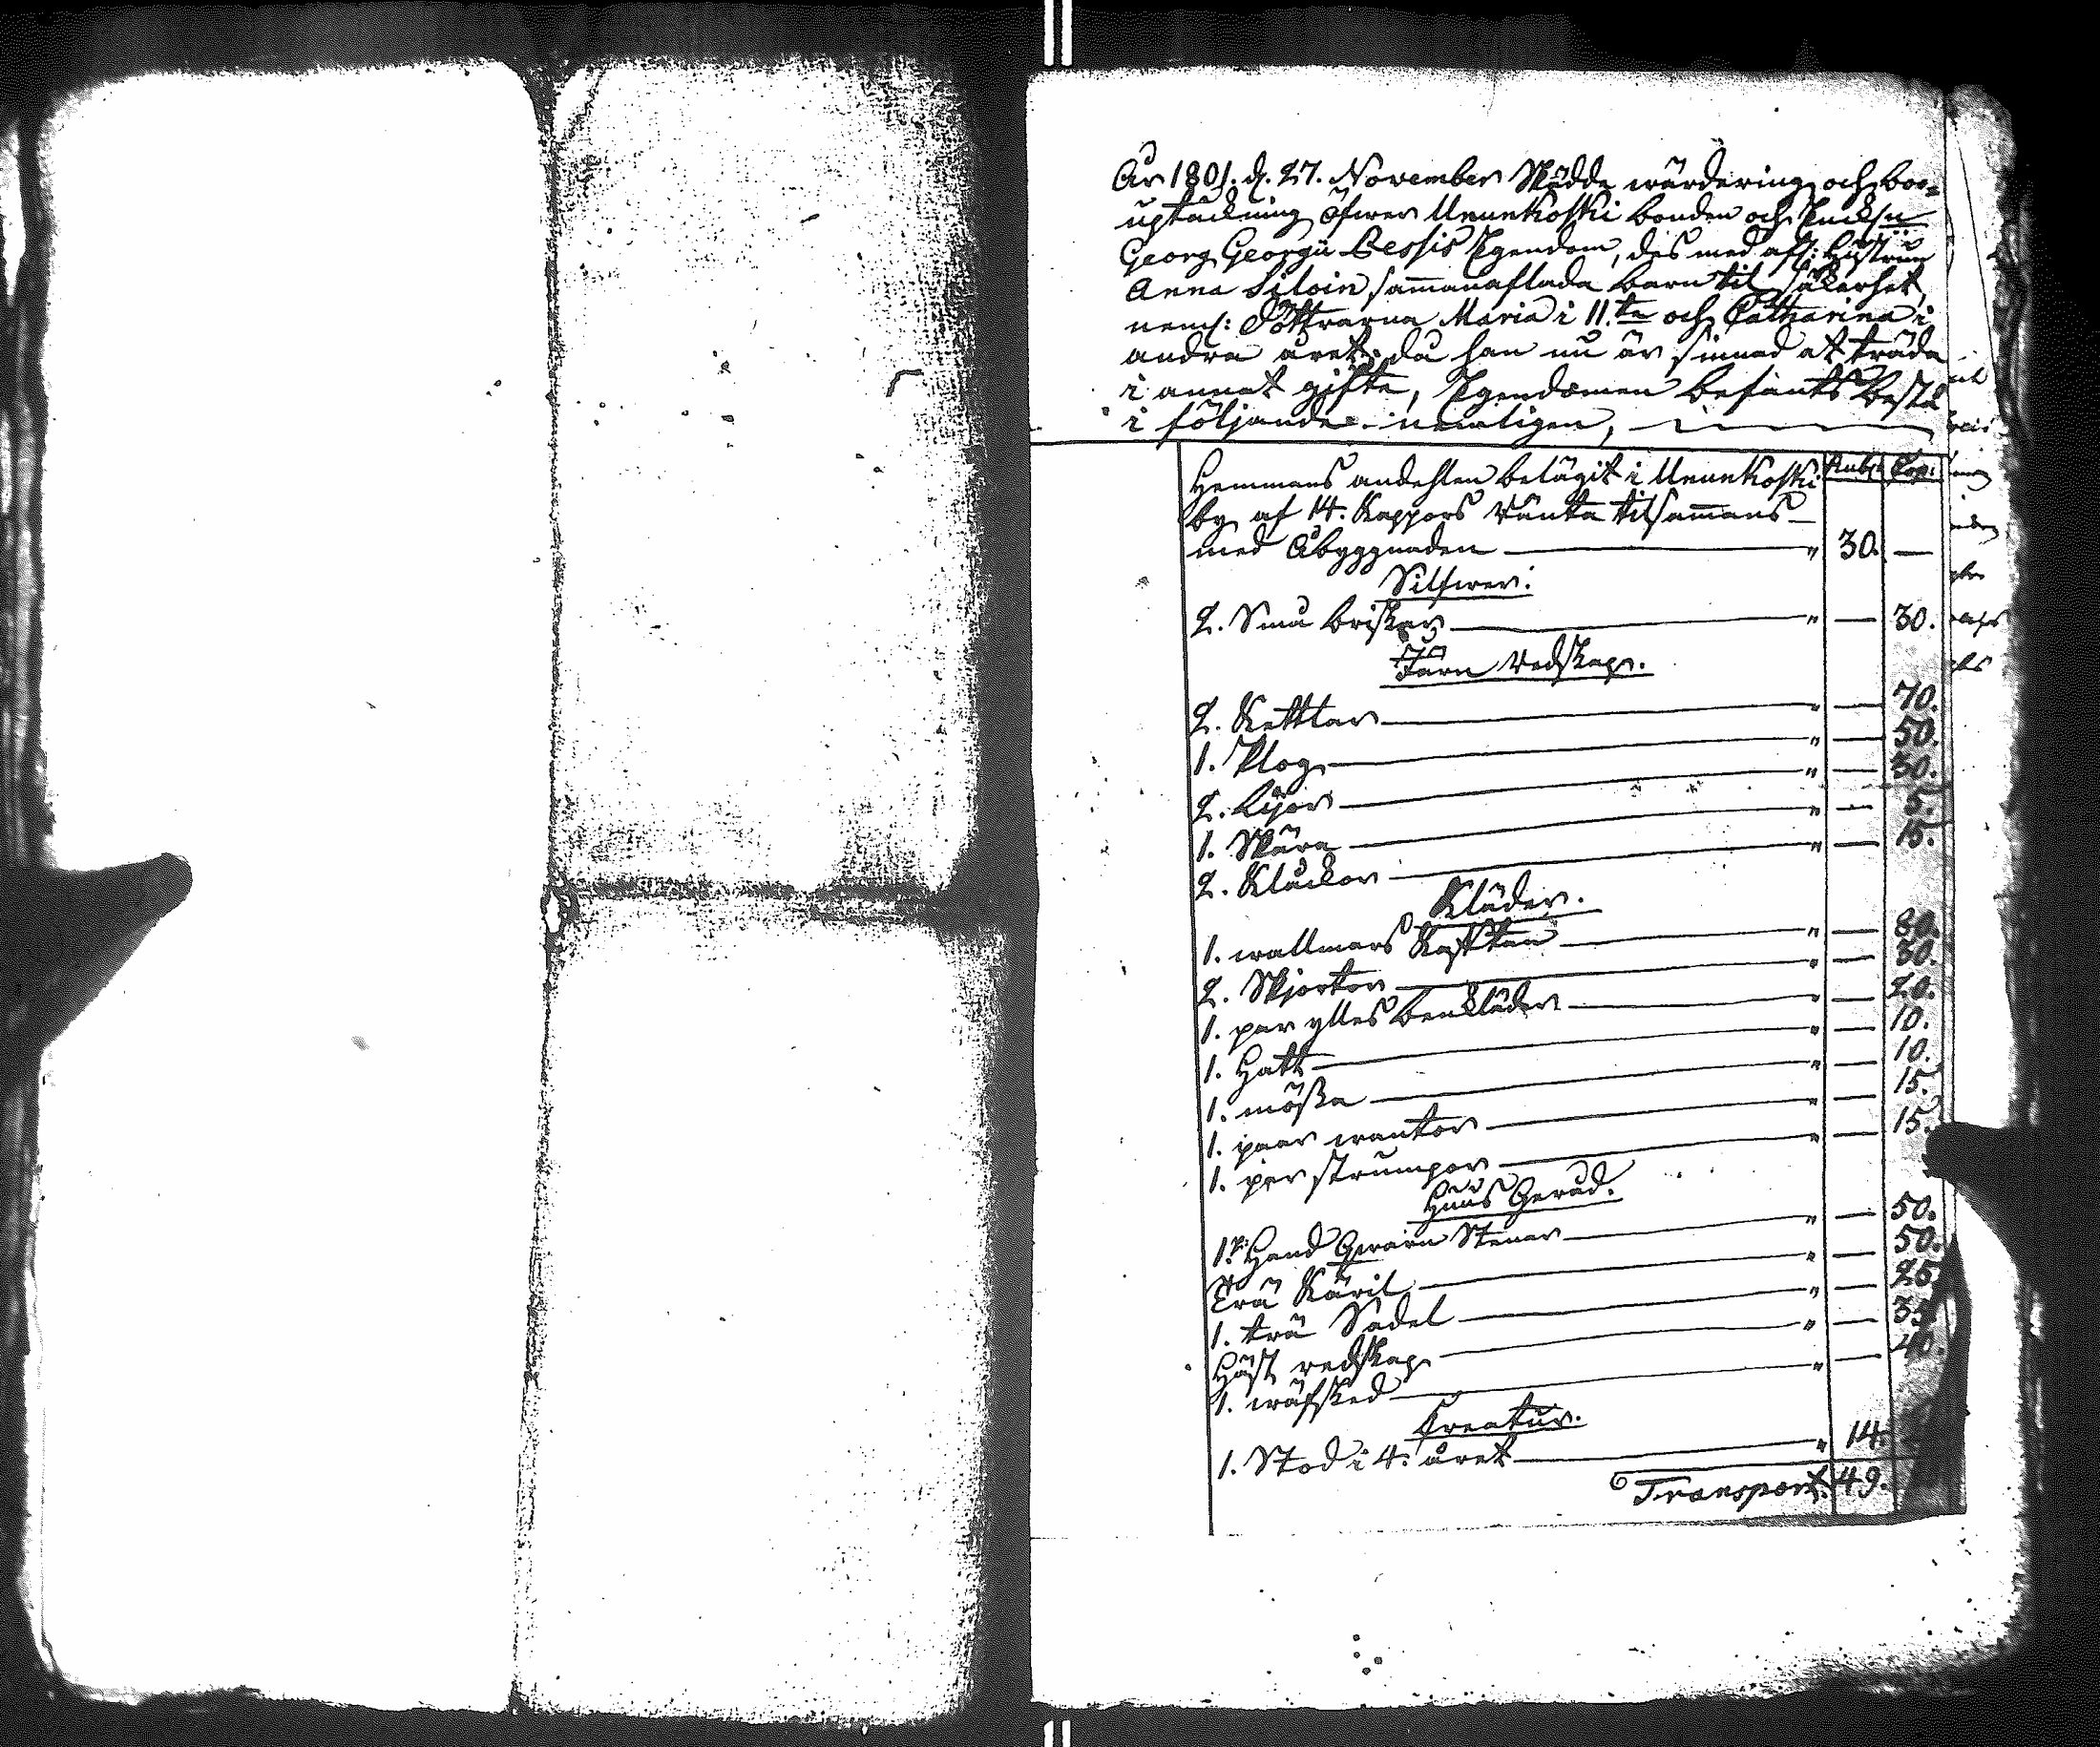 År 1801. d. 27. November Skedde wärdering och boo-
uptäckning öfwer Uunnkoski bonden och Enck:n
Georg Georgii Bessis Egendom, des med afl: hustrun
Anna Siloin sammanaflada barn til säkerhet,
neml: Döttrarna Maria i 11.te och Catharina i
andra året; då han nu är sinnad at träda
i annat gifte, Egendomen befants bestå
i följande nemligen,
Rub: Cop:
Hemmans andehlen belägit i Uunnkoski
by af 14. Kappors Ränta tilsammans
med Åbyggnaden " 30. —
Silfwer:
2. Små brisker " — 30.
Jern Redskap.
2. Kettlar " — 70.
1. Plog " — 50.
2. Lijor " — 30.
1. Skära " — 5.
2. Kluckor " — 15.
Kläder.
1. wallmars Kafftan " — 80.
2. Skjortor " — 30.
1. par ylles benkläder " — 20.
1. Hatt " — 10.
1. mössa " — 10.
1. paar wantor " — 15.
1. par strumpor " — 15.
Huus Geråd.
1. Hand Qwarn Stenar " — 50.
Trä Käril " — 50.
1. trä Sadel " — 25.
Häst redskap " — 35.
1. wäfsked " — 40.
Creatur.
1. Stod i 4: året " 14.
Transport. 49.